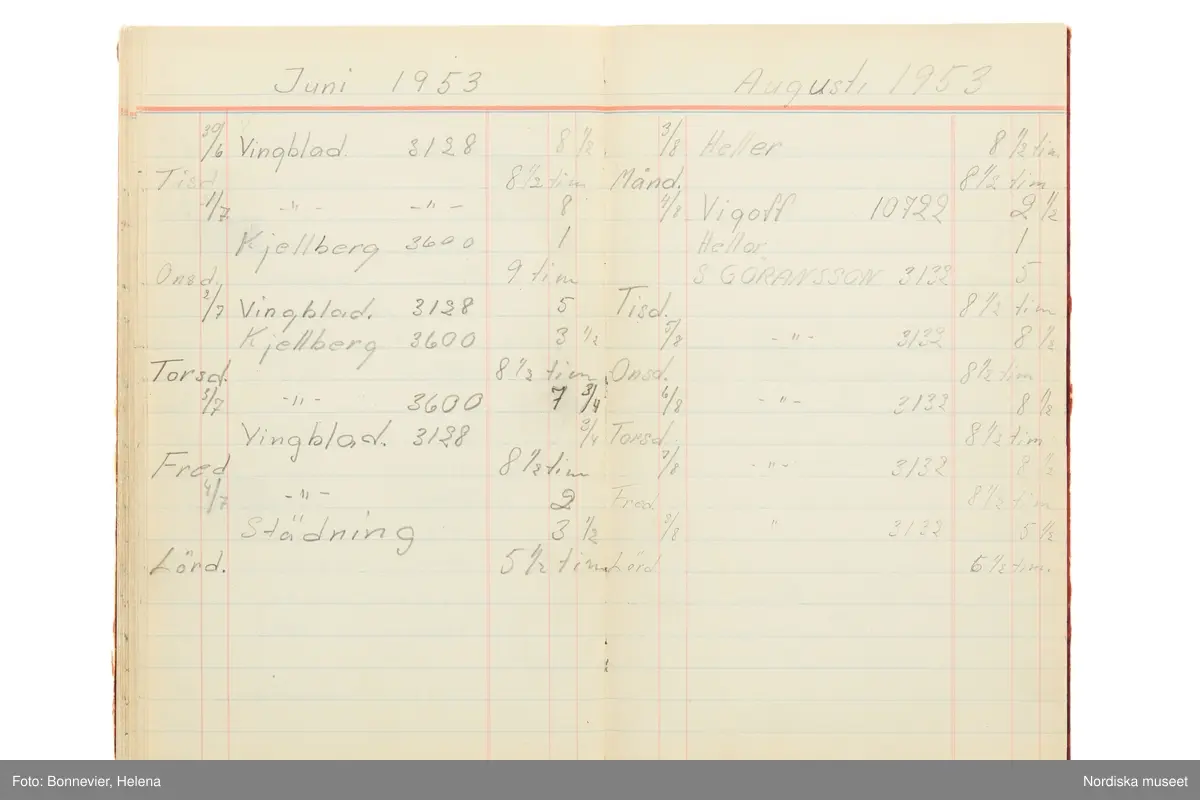 Juni 1953
30/6 Vingblad. 3128 8 1/2
Tisd 8 1/2 tim
1/7 -"- -"- 8
Kjellberg 3600 1
Onsd. 9 tim
2/7 Vingblad. 3128 5
Kjellberg 3600 3 1/2
Torsd. 8 1/2 tim
3/7 -"- 3600 7 3/4
Vingblad. 3128 3/4
Fred 8 1/2 tim
4/7 -"- 2
Städning 3 1/2
Lörd. 5 1/2 tim
Augusti 1953
3/8 Heller 8 1/2 tim
Månd. 8 1/2 tim
4/8 Vigoff 10722 2 1/2
Heller 1
S GÖRANSSON 3132 5
Tisd. 8 1/2 tim
5/8 -"- 3132 8 1/2
Onsd. 8 1/2 tim
6/8 -"- 3132 8 1/2
Torsd. 8 1/2 tim
7/8 -"- 3132 8 1/2
Fred. 8 1/2 tim
8/8 " 3132 5 1/2
Lörd 5 1/2 tim.
Foto: Bonnevier, Helena
Nordiska museet